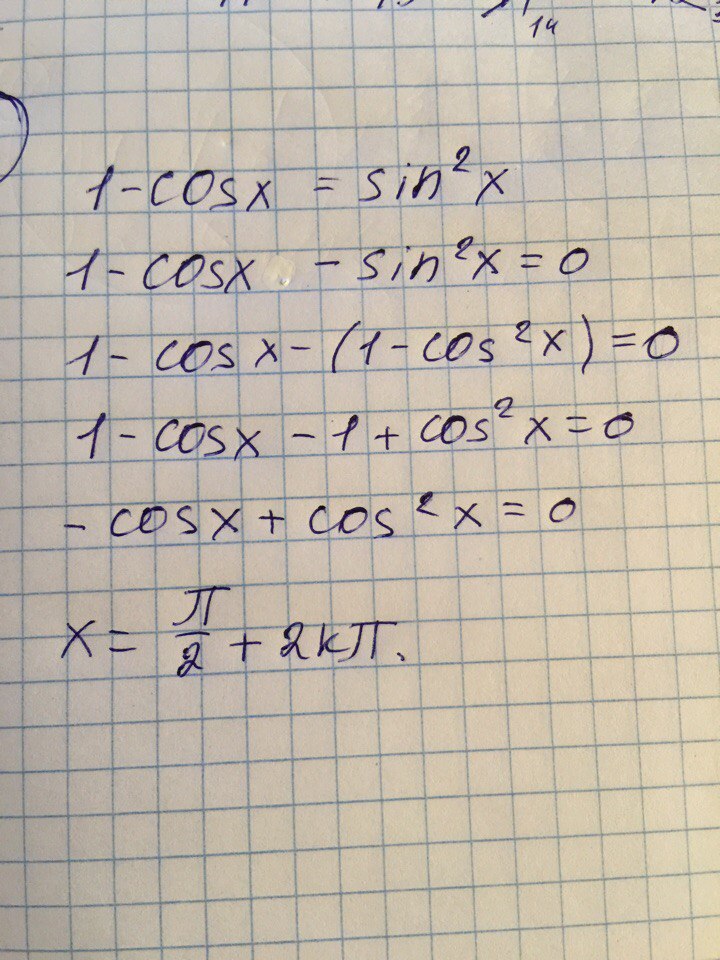 14
1-cosx = sin²x
1-cosx - sin²x=0
1- cosx-(1-cos²x)=0
1-cosx -1+cos²x=0
- cosx+cos²x=0
x= π/2 +2kπ.